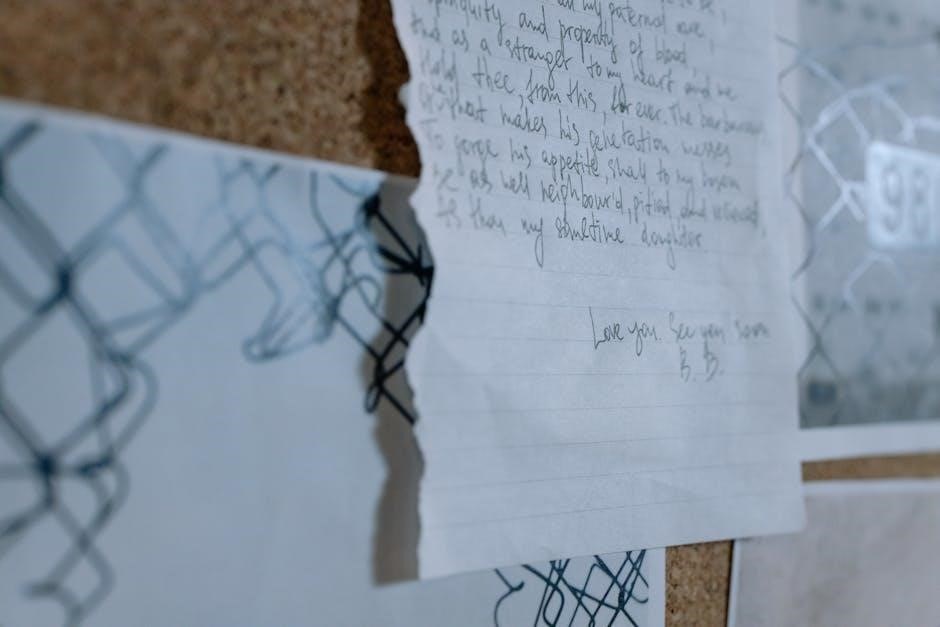 all my paternal care,
propinquity and property of blood,
And as a stranger to my heart and me
Hold thee, from this, for ever. The barbarous
makes his generation messes
To gorge his appetite, shall to my bosom
be as well neighbour'd, pitied, and relieved
As than my sometime daughter
Love you. See you soon
B. B.
98